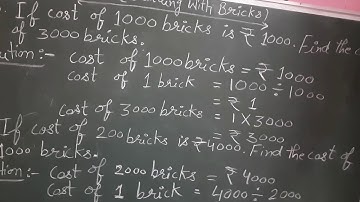 With Bricks)
If cost of 1000 bricks is ₹1000. Find the
of 3000 bricks.
ution:- Cost of 1000 bricks = ₹ 1000
Cost of 1 brick = 1000 ÷ 1000
= ₹ 1
Cost of 3000 bricks = 1 X 3000
= ₹ 3000
If cost of 200 bricks is ₹4000. Find the cost of
1000 bricks.
tion:- Cost of 2000 bricks = ₹ 4000
Cost of 1 brick = 4000 ÷ 2000